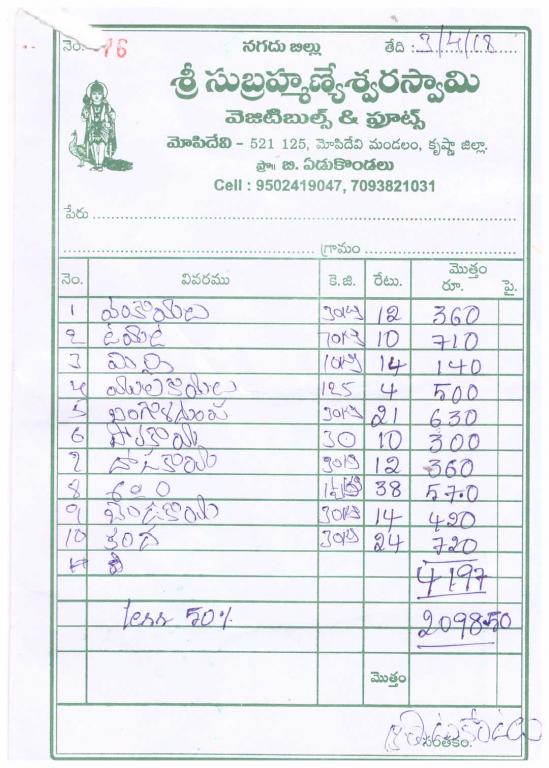 నెం. 76 నగదు బిల్లు తేది : 3/4/18
శ్రీ సుబ్రహ్మణ్యేశ్వరస్వామి
వెజిటిబుల్స్ & ఫ్రూట్స్
మోపిదేవి - 521 125, మోపిదేవి మండలం, కృష్ణా జిల్లా.
ప్రొ॥ బి. ఏడుకొండలు
Cell : 9502419047, 7093821031
పేరు
గ్రామం
నెం. వివరము కె.జి. రేటు. మొత్తం రూ. పై.
1 వంకాయలు 30 12 360
2 టమాట 10 710
3 మిర్చి 10 14 140
4 ములకాయలు 125 4 500
5 బంగాళదుంప 30 21 630
6 30 10 300
7 దోసకాయ 30 12 360
8 38 570
9 బెండకాయ 30 14 420
10 కంద 30 24 720
4197
less 50% 2098.50
మొత్తం
సంతకం.